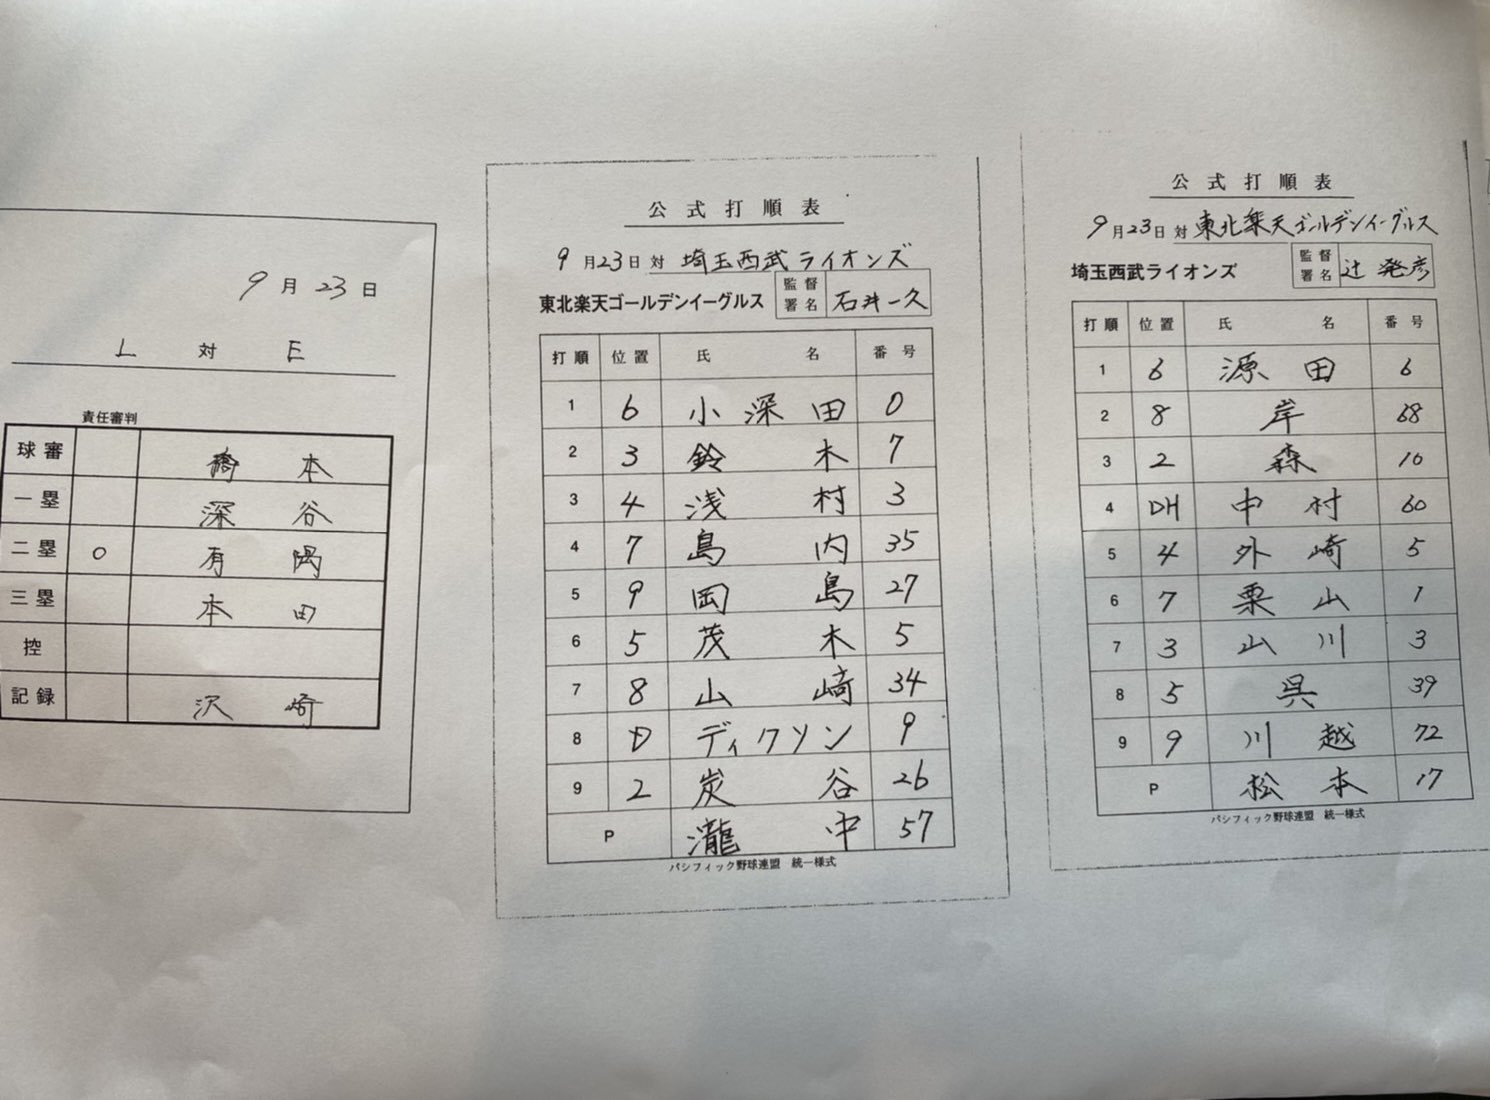 9月23日
L 対 E
責任審判
球審 橋本
一塁 深谷
二塁 ○ 有隅
三塁 本田
控
記録 沢崎
公式打順表
9月23日 対 埼玉西武ライオンズ
東北楽天ゴールデンイーグルス 監督署名 石井一久
打順 位置 氏名 番号
1 6 小深田 0
2 3 鈴木 7
3 4 浅村 3
4 7 島内 35
5 9 岡島 27
6 5 茂木 5
7 8 山崎 34
8 D ディクソン 9
9 2 炭谷 26
P 瀧中 57
パシフィック野球連盟 統一様式
公式打順表
9月23日 対 東北楽天ゴールデンイーグルス
埼玉西武ライオンズ 監督署名 辻発彦
打順 位置 氏名 番号
1 6 源田 6
2 8 岸 68
3 2 森 10
4 DH 中村 60
5 4 外崎 5
6 7 栗山 1
7 3 山川 3
8 5 呉 39
9 9 川越 72
P 松本 17
パシフィック野球連盟 統一様式